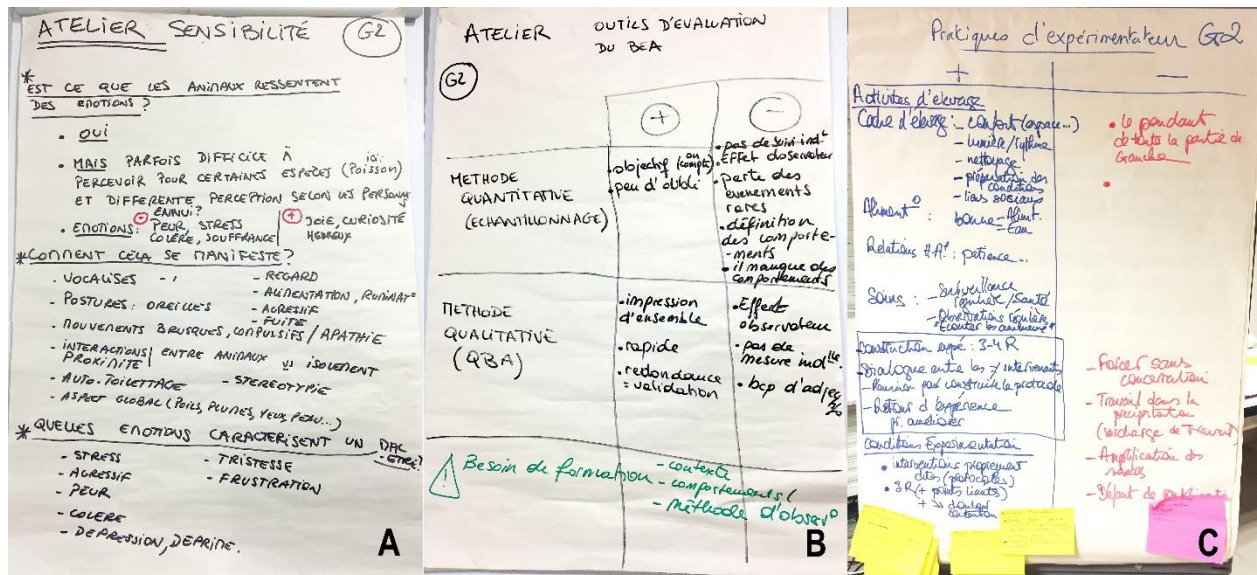 ATELIER SENSIBILITÉ G2
* EST CE QUE LES ANIMAUX RESSENTENT
DES EMOTIONS ?
• OUI
• MAIS PARFOIS DIFFICILE À
PERCEVOIR POUR CERTAINES ESPÈCES (Poisson)
ET DIFFERENTE PERCEPTION SELON LES PERSONNES
ENNUI ?
• EMOTIONS : - PEUR, STRESS + JOIE, CURIOSITÉ
COLÈRE, SOUFFRANCE HEUREUX
* COMMENT CELA SE MANIFESTE ?
- VOCALISES - REGARD
- POSTURES : OREILLES - ALIMENTATION, RUMINAT°
- AGRESSIF
- FUITE
- MOUVEMENTS BRUSQUES, COMPULSIFS / APATHIE
- INTERACTIONS ENTRE ANIMAUX VS ISOLEMENT
PROXIMITÉ
- AUTO-TOILETTAGE - STEREOTYPIE
- ASPECT GLOBAL (POILS, PLUMES, YEUX, PEAU...)
* QUELLES EMOTIONS CARACTERISENT UN MAL
- ETRE ?
- STRESS - TRISTESSE
- AGRESSIF - FRUSTRATION
- PEUR
- COLERE
- DEPRESSION, DEPRIME.
A
ATELIER OUTILS D'EVALUATION
DU BEA
G2
+ -
METHODE
QUANTITATIVE
(ECHANTILLONNAGE)
• objectif (on compte)
• peu d'oubli
• pas de suivi ind^l
• Effet observateur
• perte des
evenements
rares
• définition
des comporte-
ments
• il manque des
comportements
METHODE
QUALITATIVE
(QBA)
• impression
d'ensemble
• rapide
• redondance
= validation
• Effet
observateur
• pas de
mesure ind^lle
• bcp d'adjec
Besoin de formation - contexte
- comportements
- méthode d'observ°
B
Pratiques d'expérimentateur G2
+ -
Activités d'élevage
Cadre d'élevage : - confort (espace...)
- lumière/rythme
- nettoyage
- préparation des
conditions
- liens sociaux
Aliment° : bonne - Alim^t
- Eau
Relations H.A^l : patience...
Soins : - Surveillance
régulière/Santé
- Observations régulière
"Ecouter les animaux"
- Construction expé : 3-4 R
- Dialogue entre les ≠ intervenants
- Réunion pour construire le protocole
- Retours d'expérience
pr améliorer
Conditions Expérimentation
• interventions proprement
dites (protocoles)
• 3R (+ points limites)
+ douleur
contention
• le pendant
de toute la partie de
Gauche
- Forcer sans
concertation
- Travail dans la
précipitation
(surcharge de Travail)
- Amplification du
- Défaut de
C